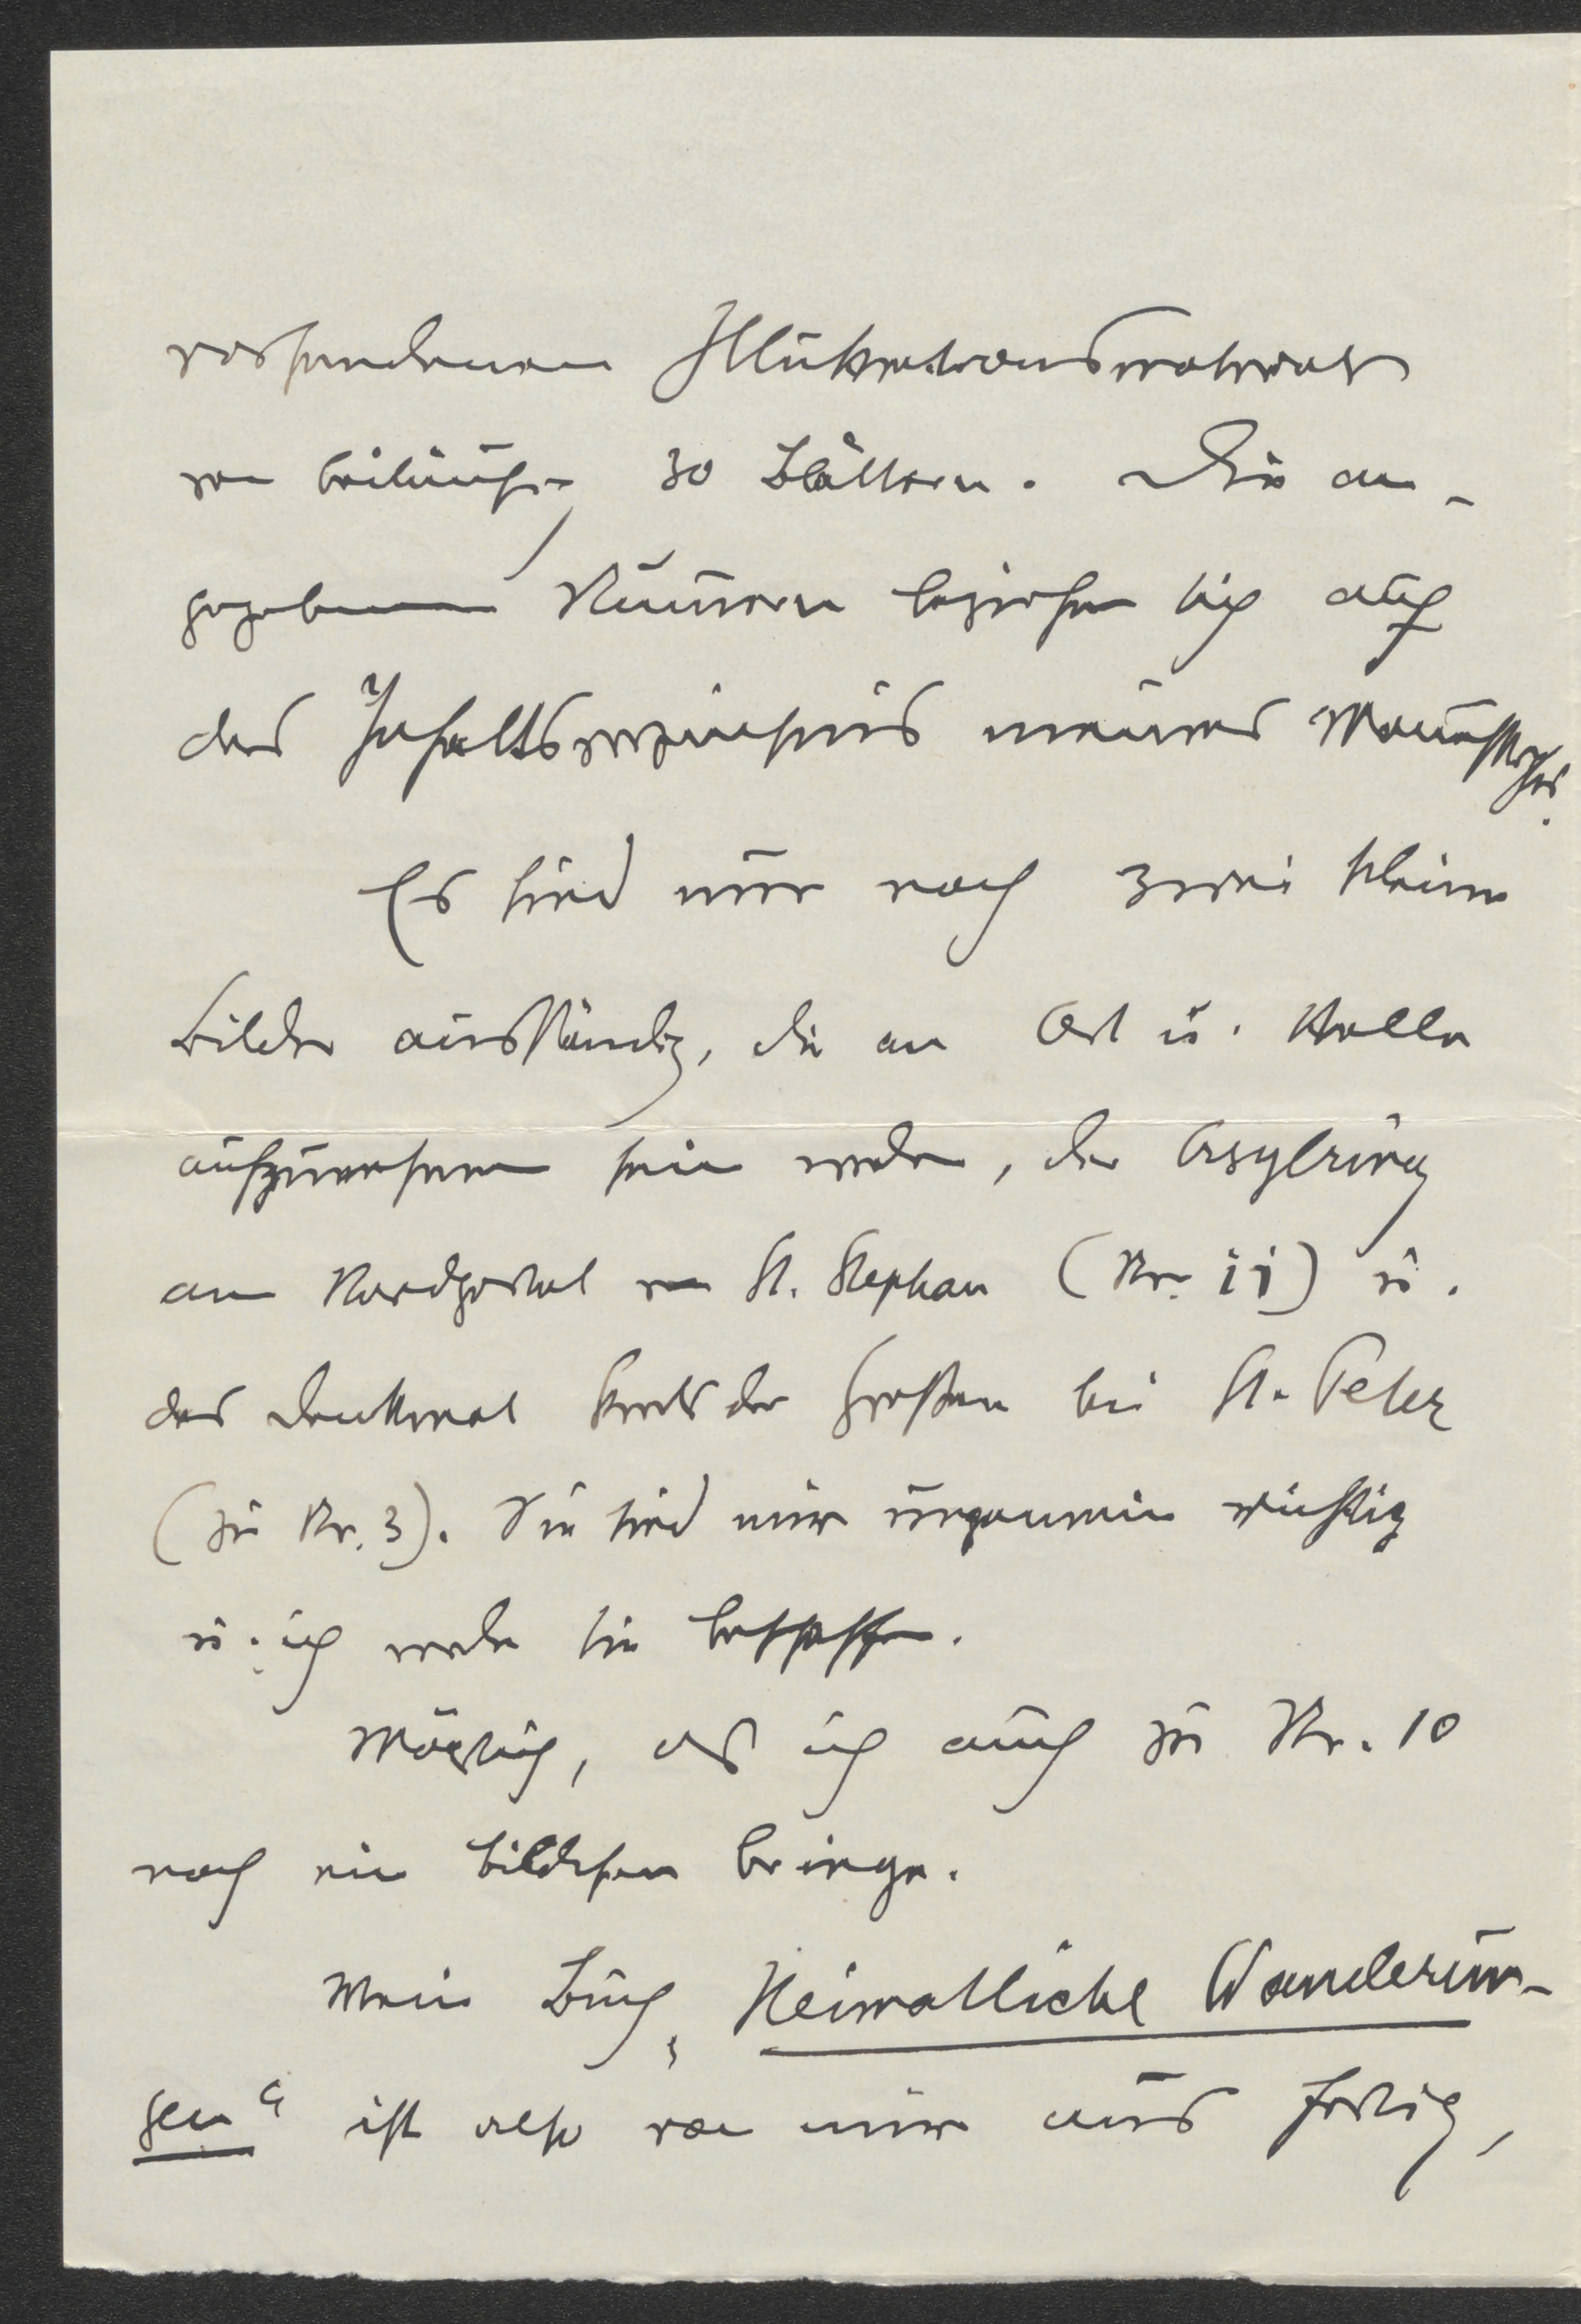 vorhandenen Illustrationsmaterial
von beiläufig 30 Blättern. Die an-
gegebenen Nummern beziehen sich auf
das Inhaltsverzeichnis meines Manuskriptes.
Es sind nur noch zwei kleine
Bilder ausständig, die an Ort u. Stelle
aufzunehmen sein werden, der Asylring
am Nordportal von St. Stephan (Nr. 11) u.
das Denkmal Karls des Großen bei St. Peter
(zu Nr. 3). Sie sind mir ungemein wichtig
u. ich werde sie beschaffen.
Möglich, daß ich auch zu Nr. 10
noch ein Bildchen bringe.
Mein Buch „Heimatliche Wanderun-
gen“ ist also von mir aus fertig,